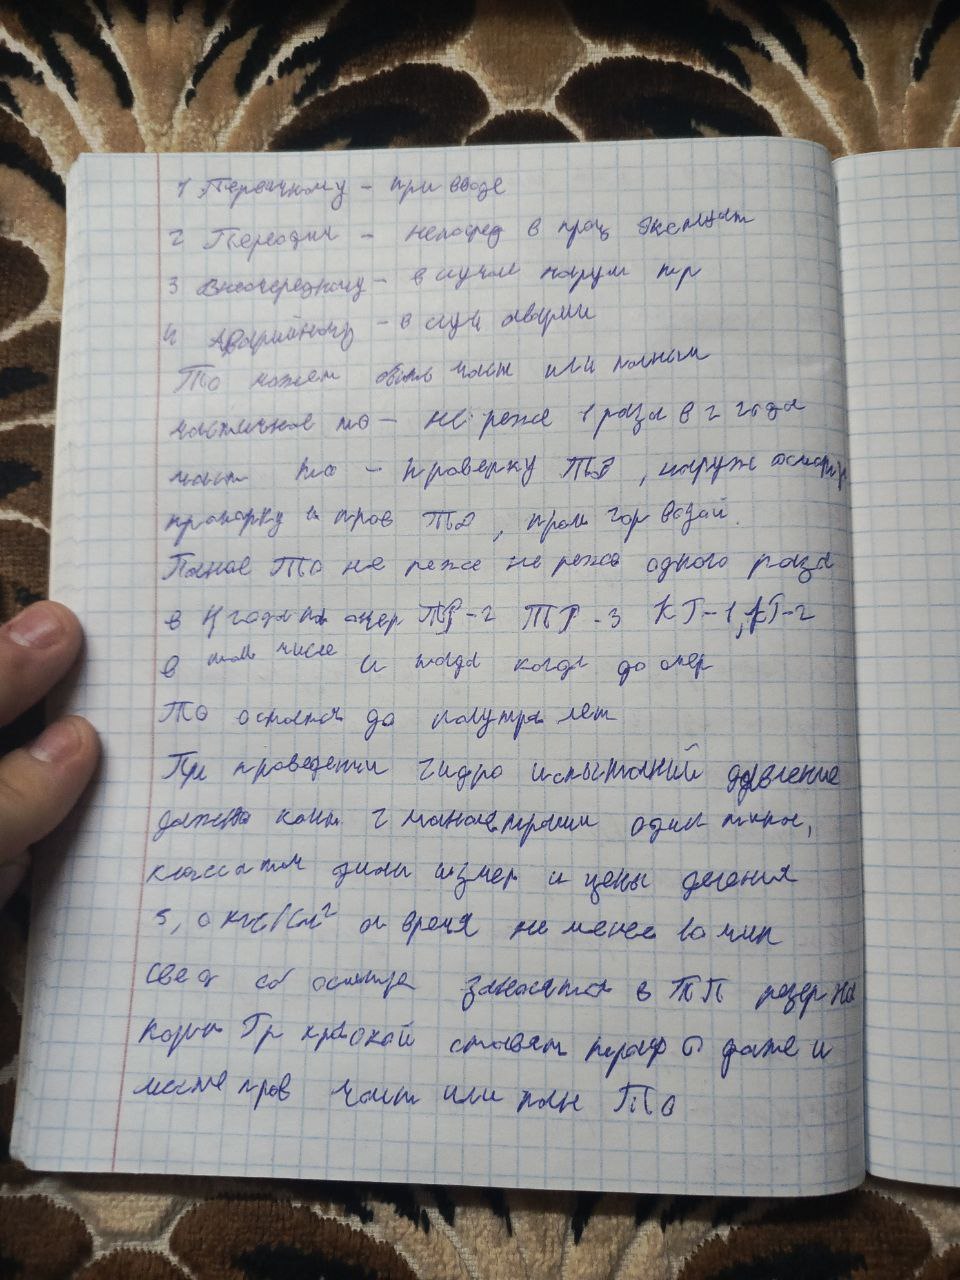 1 Первичному - при вводе
2 Переодич - непосред в проц эксплуат
3 Внеочередному - в случае наруш пр
4 Аварийному - в случ аварии
ТО может быть част или полным
частичное то - не реже 1 раза в 2 года
част то - проверку ТР, наруж осмотр
и пров ТР,
Полное ТО не реже не реже одного раза
в 4 года ТР-2 ТР-3 КР-1, КР-2
в том числе и тогда когда до очер
ТО осталось до полутра лет
При проведении гидро испытаний давление
должно конт 2 манометрами один типа,
класса точ измер и цены деления
5,0 кгс/см² и время не менее 10 мин
свед об заносятся в ТП резер на
краской ставят траф о дате и
месте пров част или полн ТО